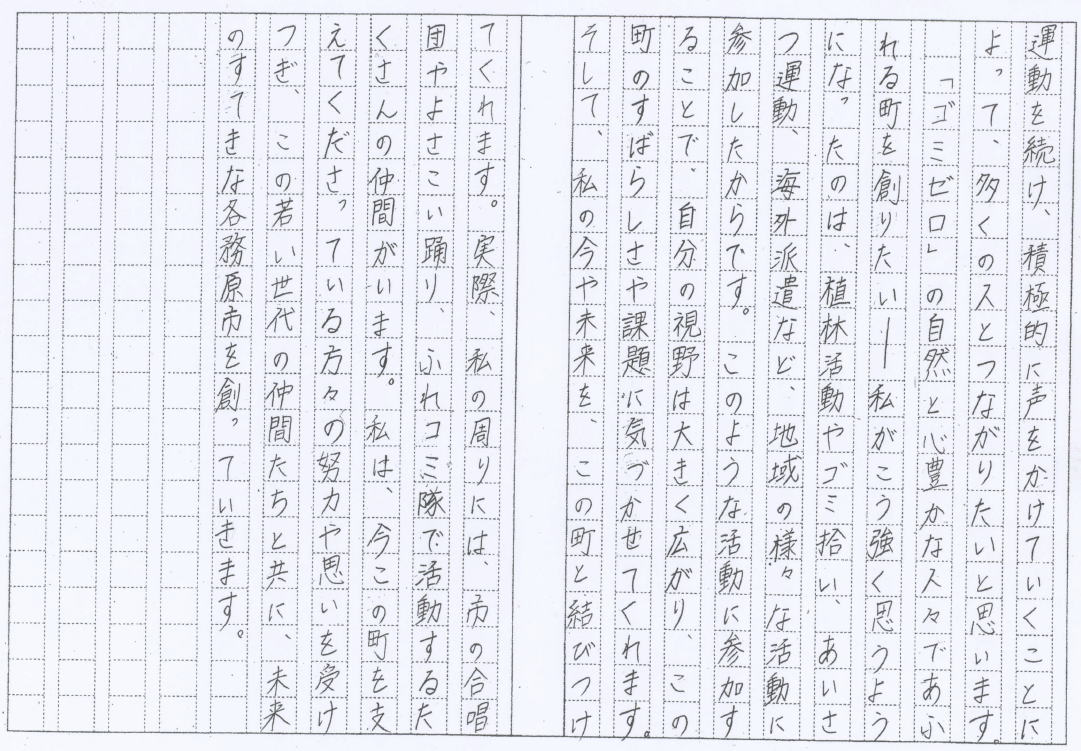 運動を続け、積極的に声をかけていくことに
よって、多くの人とつながりたいと思います。
「ゴミゼロ」の自然と心豊かな人々であふ
れる町を創りたい―私がこう強く思うよう
になったのは、植林活動やゴミ拾い、あいさ
つ運動、海外派遣など、地域の様々な活動に
参加したからです。このような活動に参加す
ることで、自分の視野は大きく広がり、この
町のすばらしさや課題に気づかせてくれます。
そして、私の今や未来を、この町と結びつけ
てくれます。実際、私の周りには、市の合唱
団やよさこい踊り、ふれコミ隊で活動するた
くさんの仲間がいます。私は、今この町を支
えてくださっている方々の努力や思いを受け
つぎ、この若い世代の仲間たちと共に、未来
のすてきな各務原市を創っていきます。